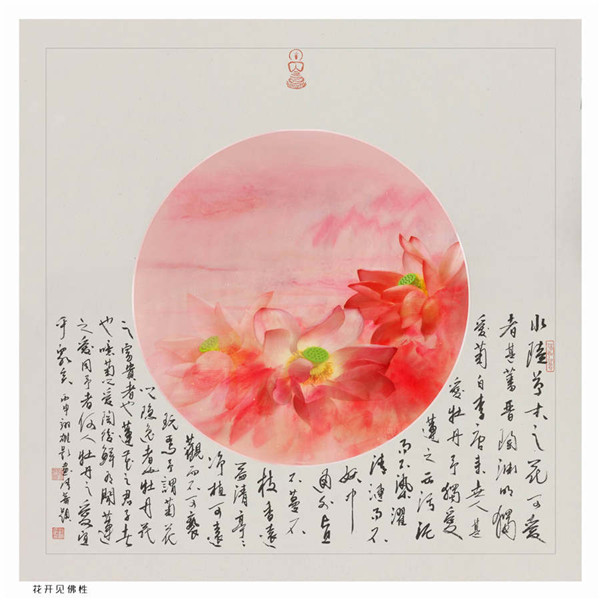 水陸草木之花可愛
者甚蕃晉陶淵明獨
愛菊自李唐来世人甚
愛牡丹予獨愛
蓮之出污泥
而不染濯
清漣而不
妖中
通外直
不蔓不
枝香遠
益清亭亭
淨植可遠
觀而不可褻
玩焉予謂菊花
之隱逸者也牡丹花
之富貴者也蓮花之君子者
也噫菊之愛陶後鮮有聞蓮
之愛同予者何人牡丹之愛宜
乎眾矣 丙申
花开见佛性